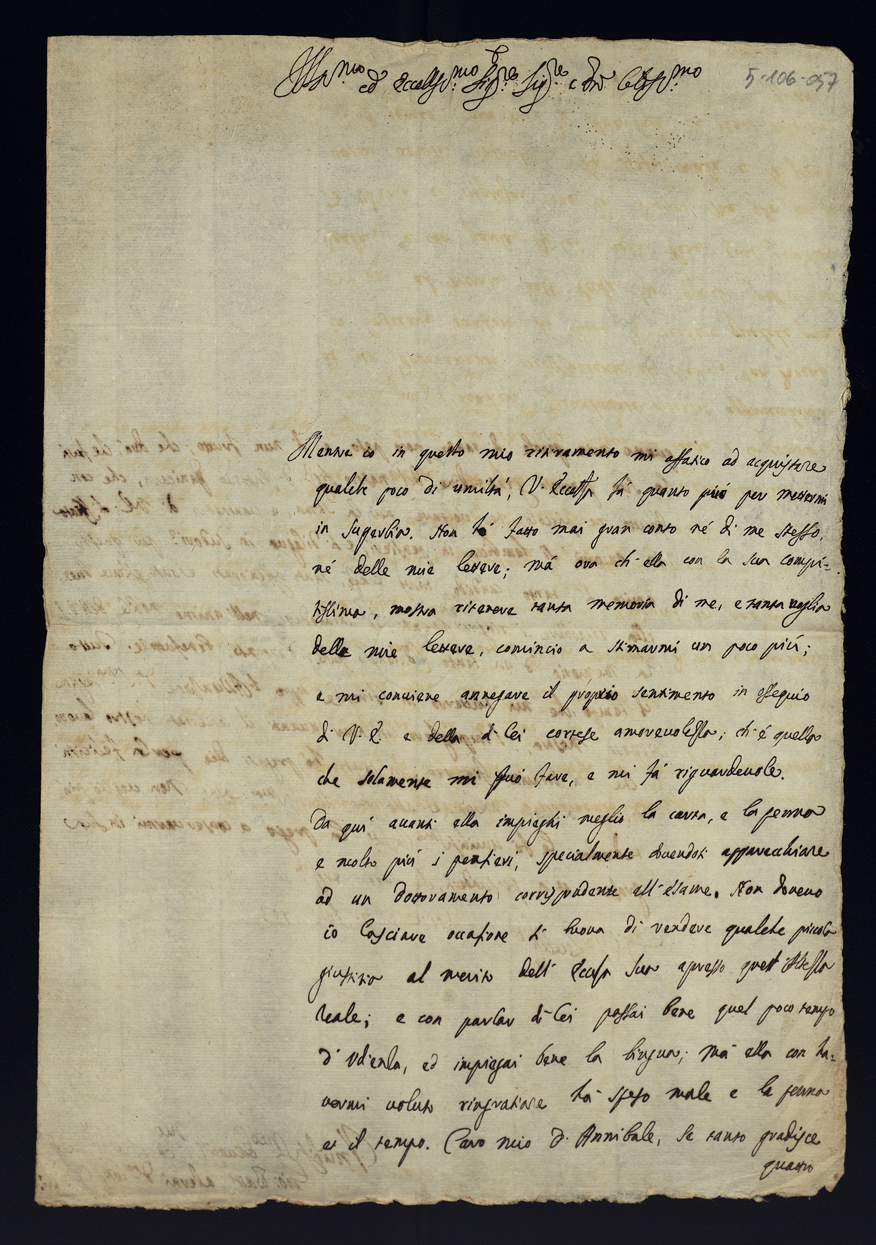 Ill.mo ed Eccell.mo Sig.re Sig.re e
5-106-057
Mentre io in questo mio ritiramento mi affatico ad acquistare
qualche poco di umiltá, V. Eccell.za fá quanto può per mettermi
in superbia. Non hó fatto mai gran conto né di me stesso,
né delle mie lettere; má ora ch'ella con la sua compi-
tissima, mostra ritenere tanta memoria di me, e tanta voglia
delle mie lettere, comincio a stimarmi un poco piú;
e mi conviene annegare il proprio sentimento in ossequio
di V. E. e della di Lei cortese amorevolezza; ch'é quella
che solamente mi può fare, e mi fá riguardevole.
Da quí avanti ella impieghi meglio la carta, e la penna
e molto piú i pensieri, specialmente dovendosi apparecchiare
ad un dottoramento corrispondente all'esame. Non dovevo
io lasciare occasione sí buona di rendere qualche piccola
giustizia al merito dell'Ecc.za Sua apresso quest'Altezza
Reale; e con parlar di Lei passai bene quel poco tempo
d'Udienza, ed impiegai bene la lingua; má ella con ha-
vermi voluto ringratiare há speso male e la penna
et il tempo. Caro mio D. Annibale, se tanto gradisce
quatro